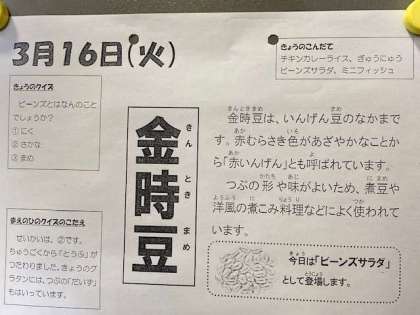 3月16日(火)
きょうのこんだて
チキンカレーライス、ぎゅうにゅう
ビーンズサラダ、ミニフィッシュ
きょうのクイズ
ビーンズとはなんのこと
でしょうか?
①にく
②さかな
③まめ
まえのひのクイズのこたえ
せいかいは、②です。
ちゅうごくから「とうふ」が
つたわりました。きょうのグ
ラタンには、つぶの「だいず」
もはいっています。
金時豆
きん とき まめ
金時豆は、いんげん豆のなかまで
す。赤むらさき色があざやかなことか
ら「赤いんげん」とも呼ばれています。
つぶの形や味がよいため、煮豆や
洋風の煮こみ料理などによく使われて
います。
今日は「ビーンズサラダ」
として登場します。